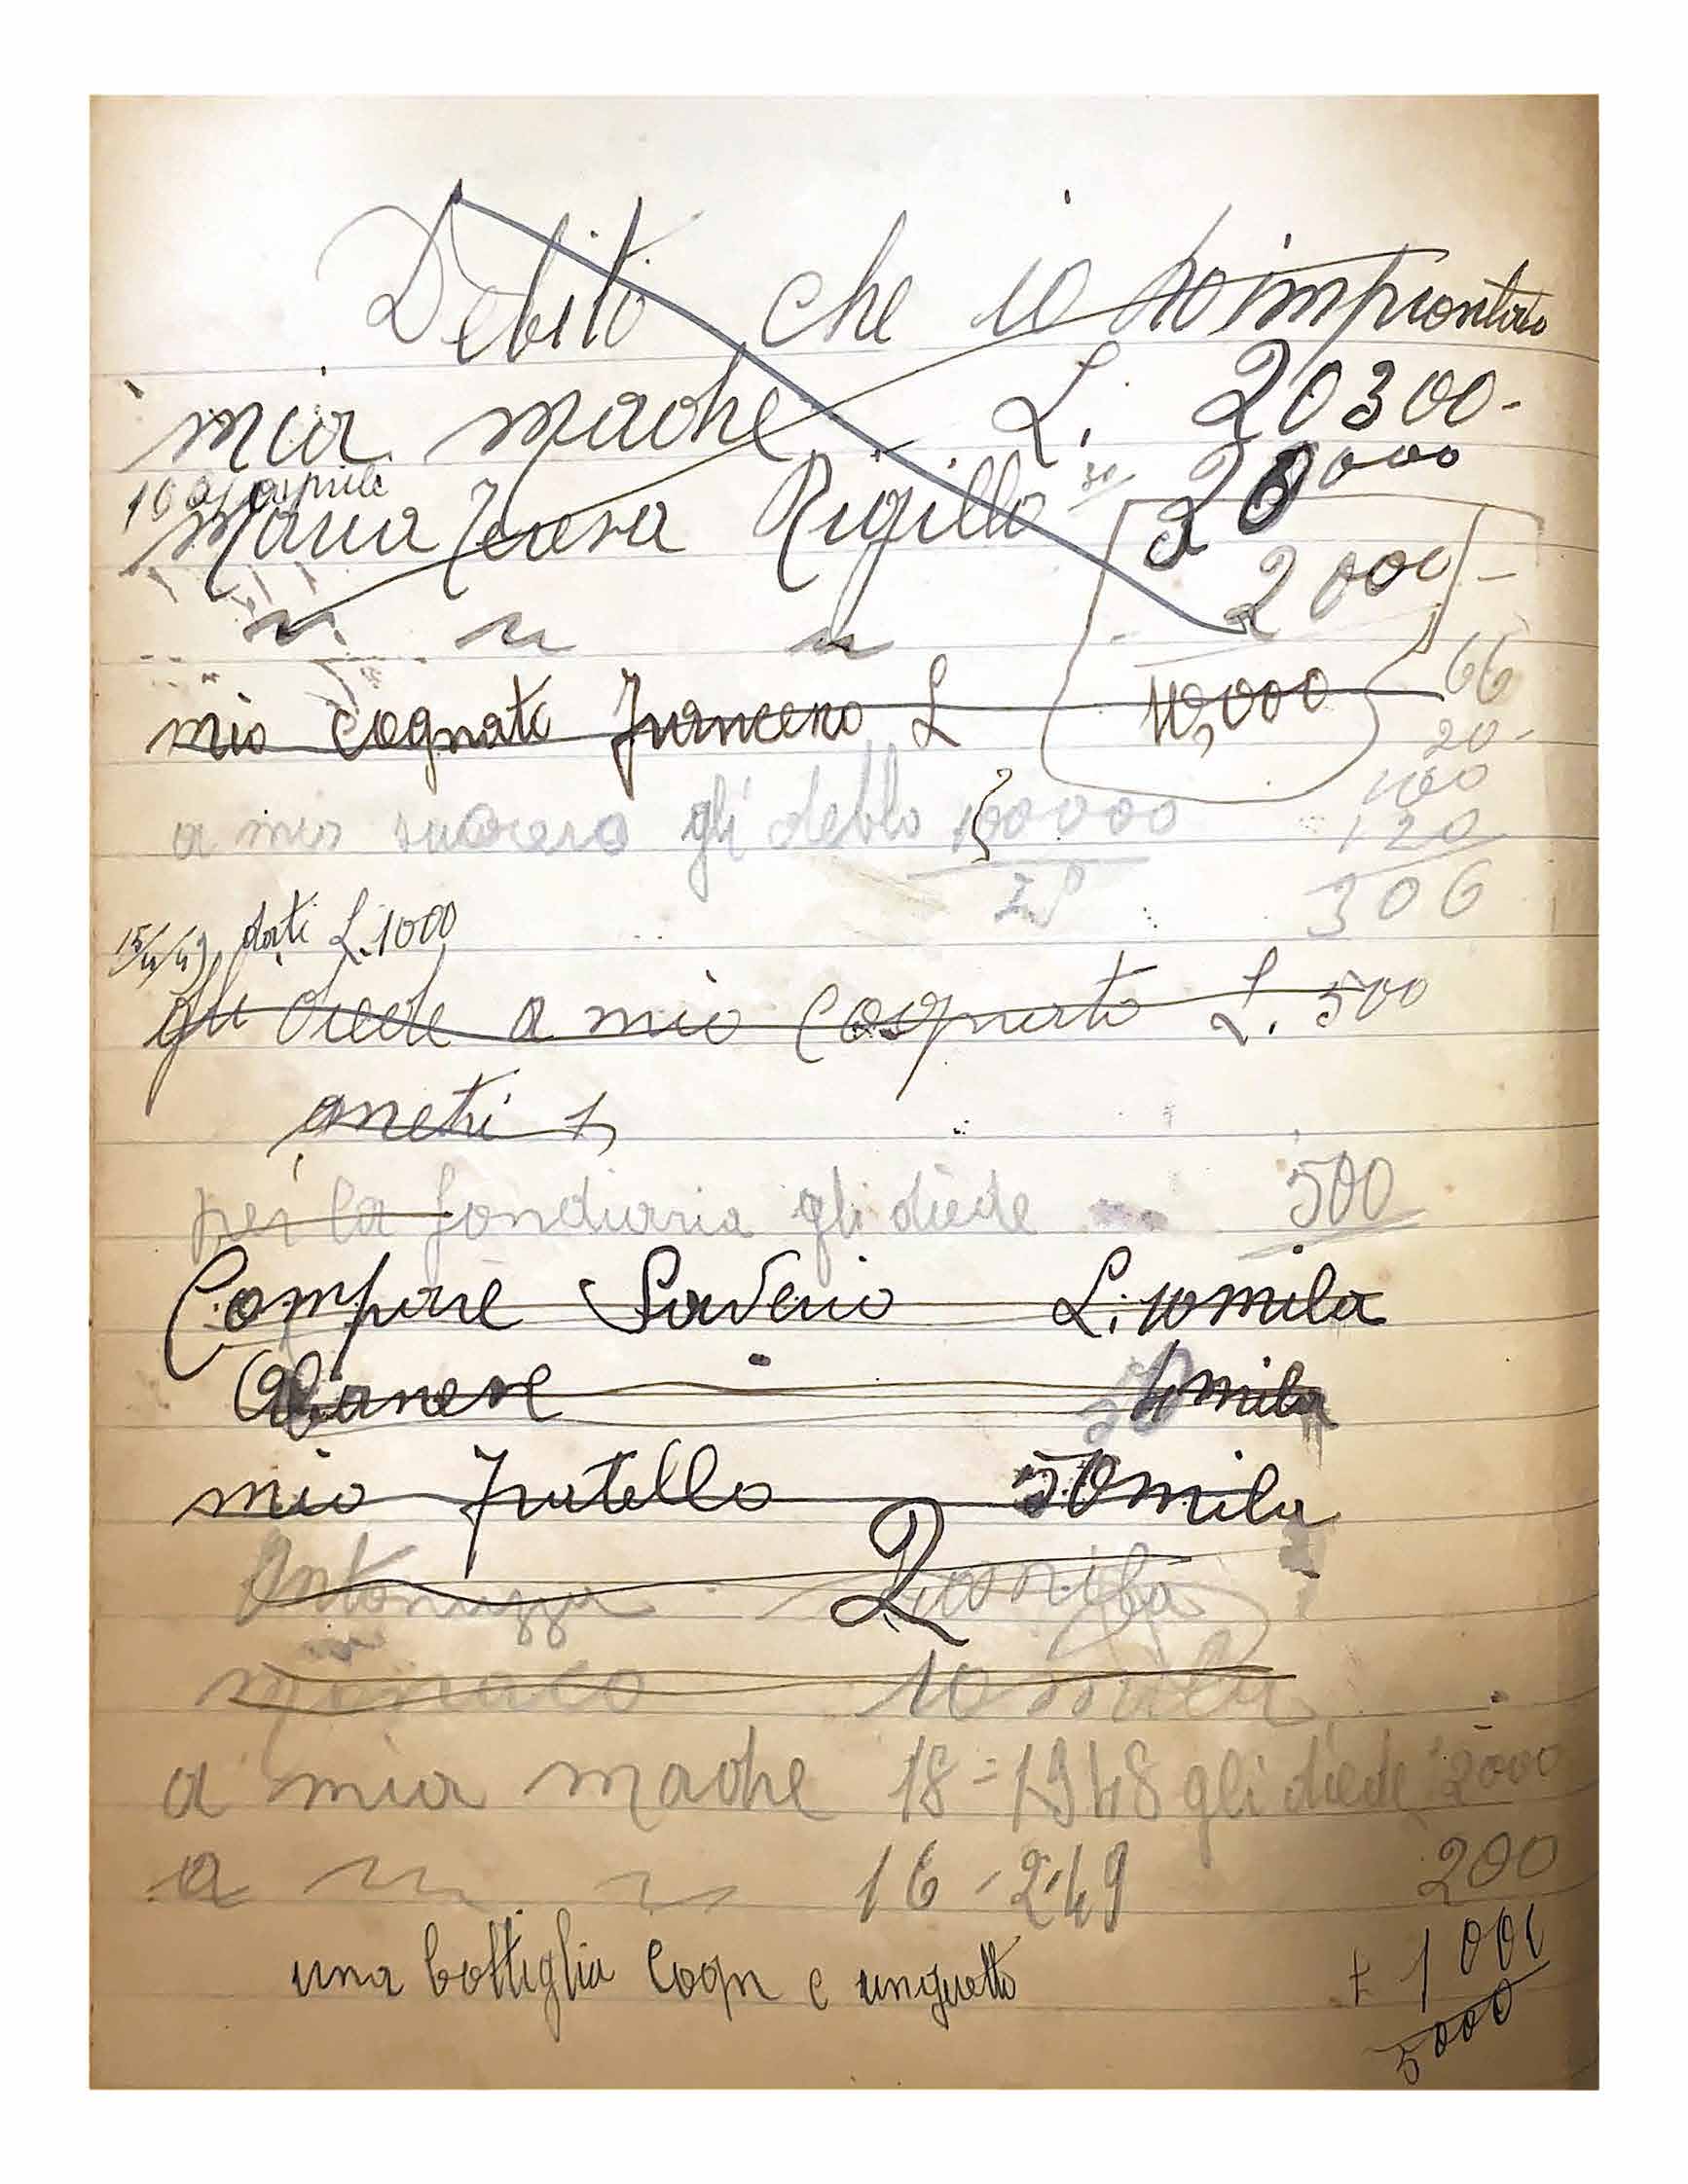 Debito che io ho improntato
mia madre L. 20300-
10 aprile
Maria Teresa Rigillo 30 30000
" " " 2000 -
mio cognato Francesco L 10,000 66
20-
100
a mio suocero gli debbo 100000 120
306
15/4/49 dati L. 1000
gli diede a mio Cognato L. 500
per la fondiaria gli diede 500
Compare Saverio L. 10 mila
Albanese 4 mila
mio fratello 50 mila
Antonuzza
monaco 10 mila
a mia madre 18=1948 gli diede 2000
a " " 16-2-49 200
una bottiglia Cogn e unguetto + 1000
5000